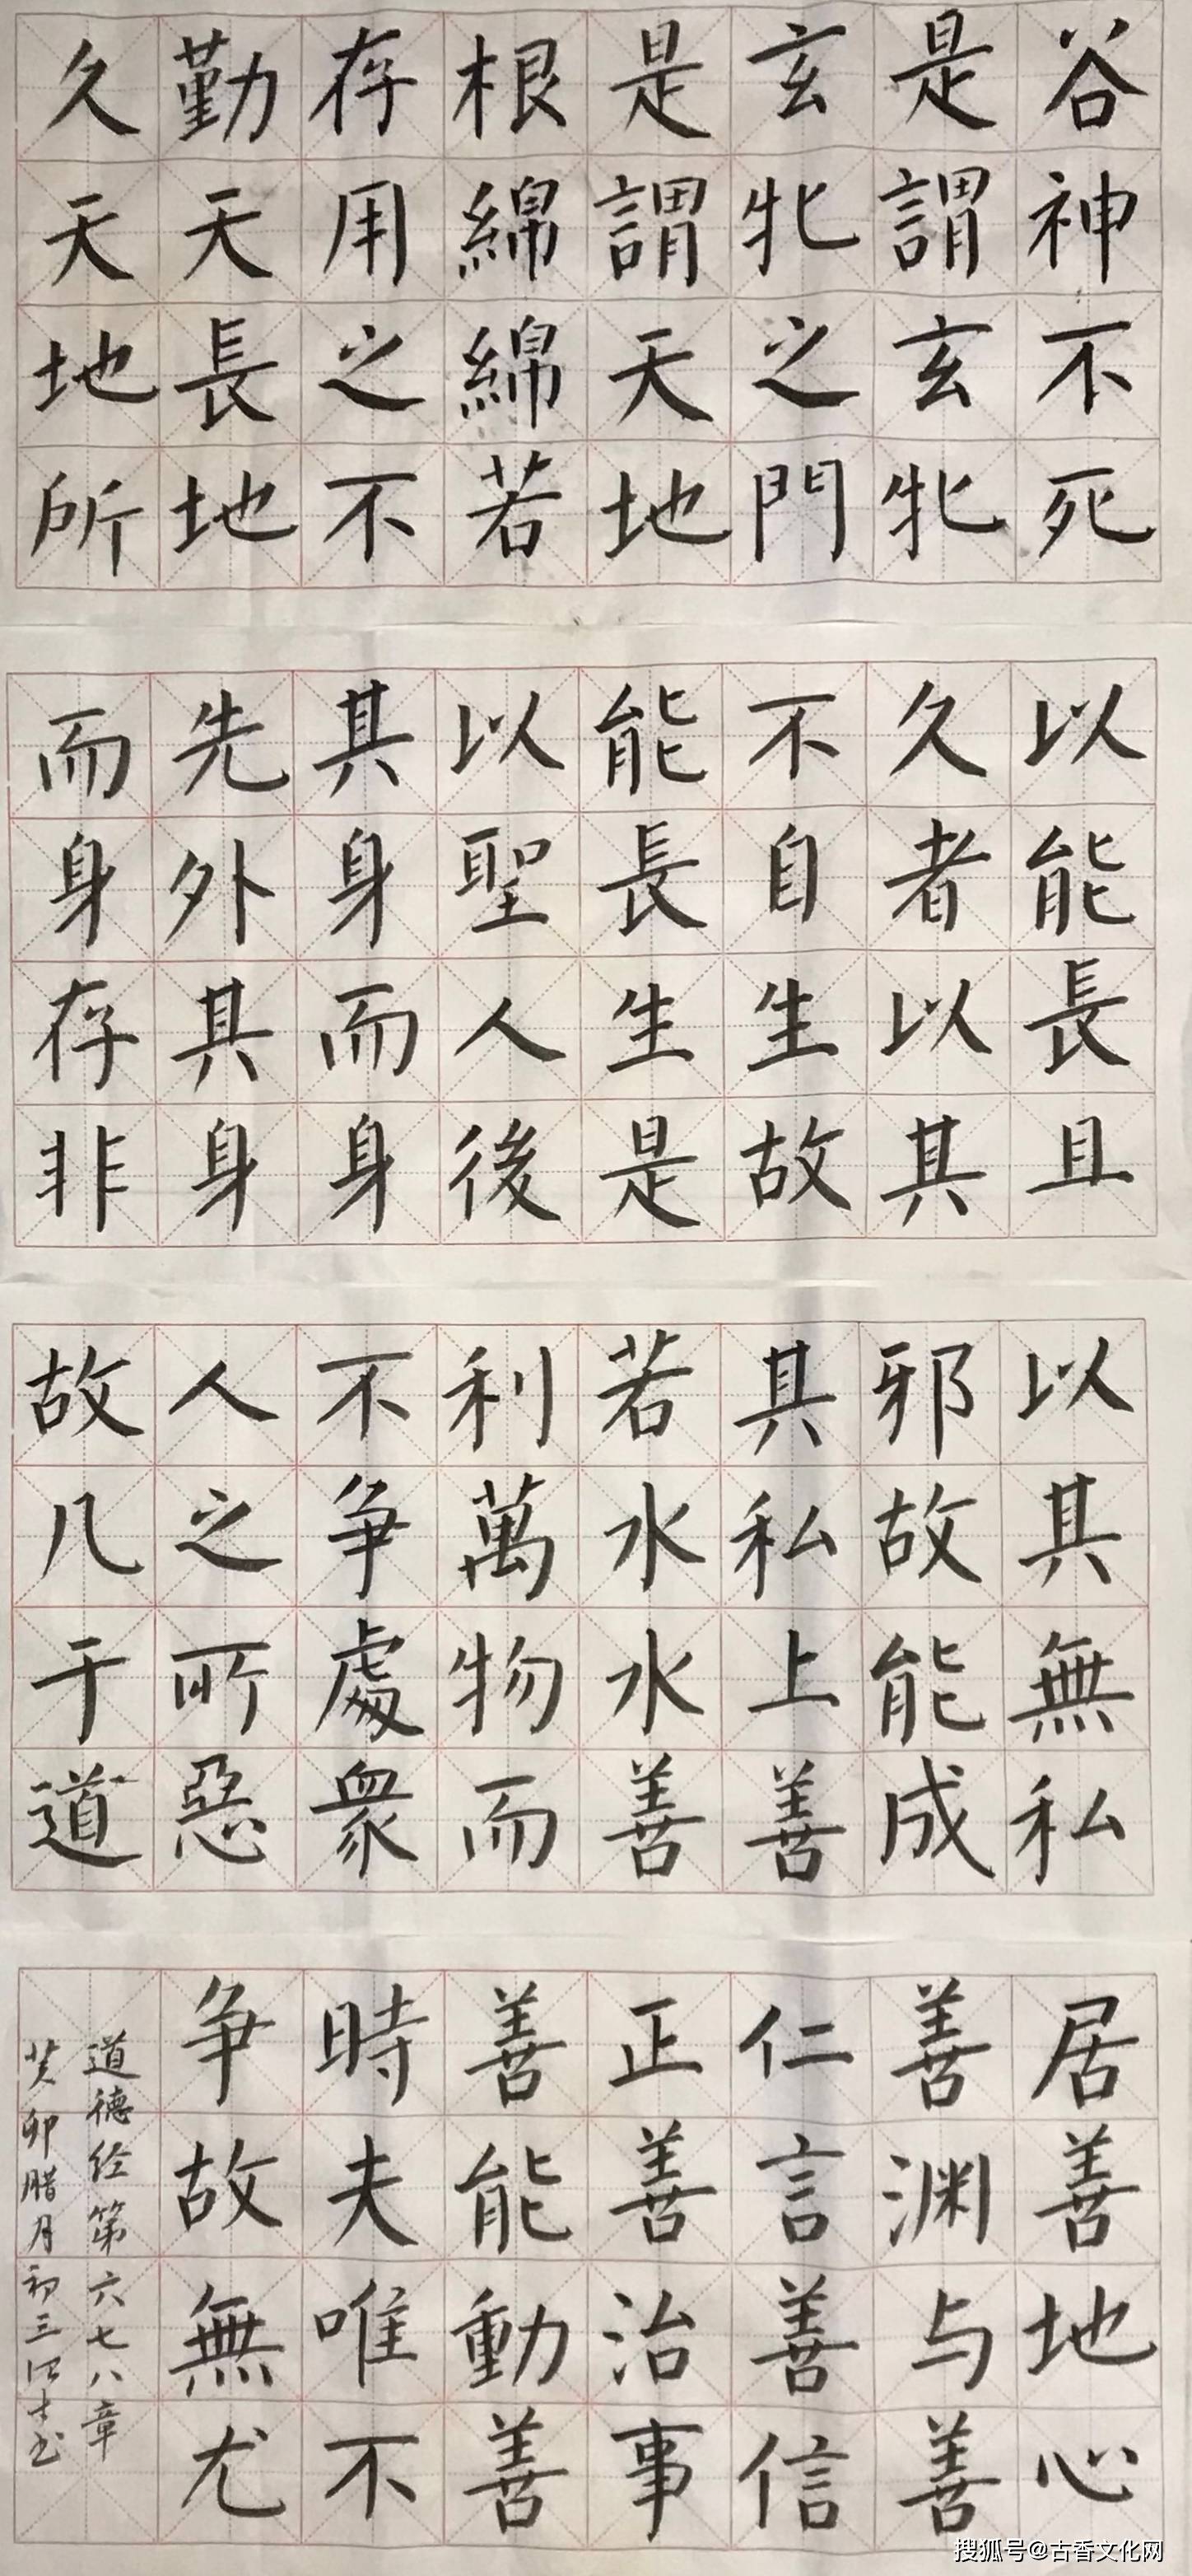 谷神不死
是謂玄牝
玄牝之門
是謂天地
根綿綿若
存用之不
勤天長地
久天地所
以能長且
久者以其
不自生故
能長生是
以聖人後
其身而身
先外其身
而身存非
以其無私
邪故能成
其私上善
若水水善
利萬物而
不争處衆
人之所惡
故几于道
居善地心
善渊与善
仁言善信
正善治事
善能動善
時夫唯不
争故無尤
道德经第六七八章
癸卯腊月初三
搜狐号@古香文化网